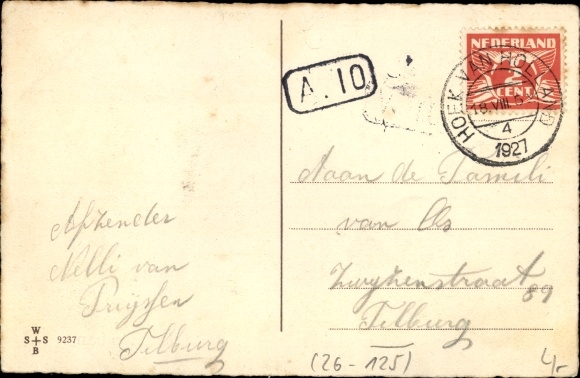 Afzender
Nelli van
Tilburg
W
S S
B
9237
A. 10
NEDERLAND
2
CENT
HOEK VAN HOLLAND
18.VIII
4
1927
Aan de Famili
van Os
89
Tilburg
(26-125)